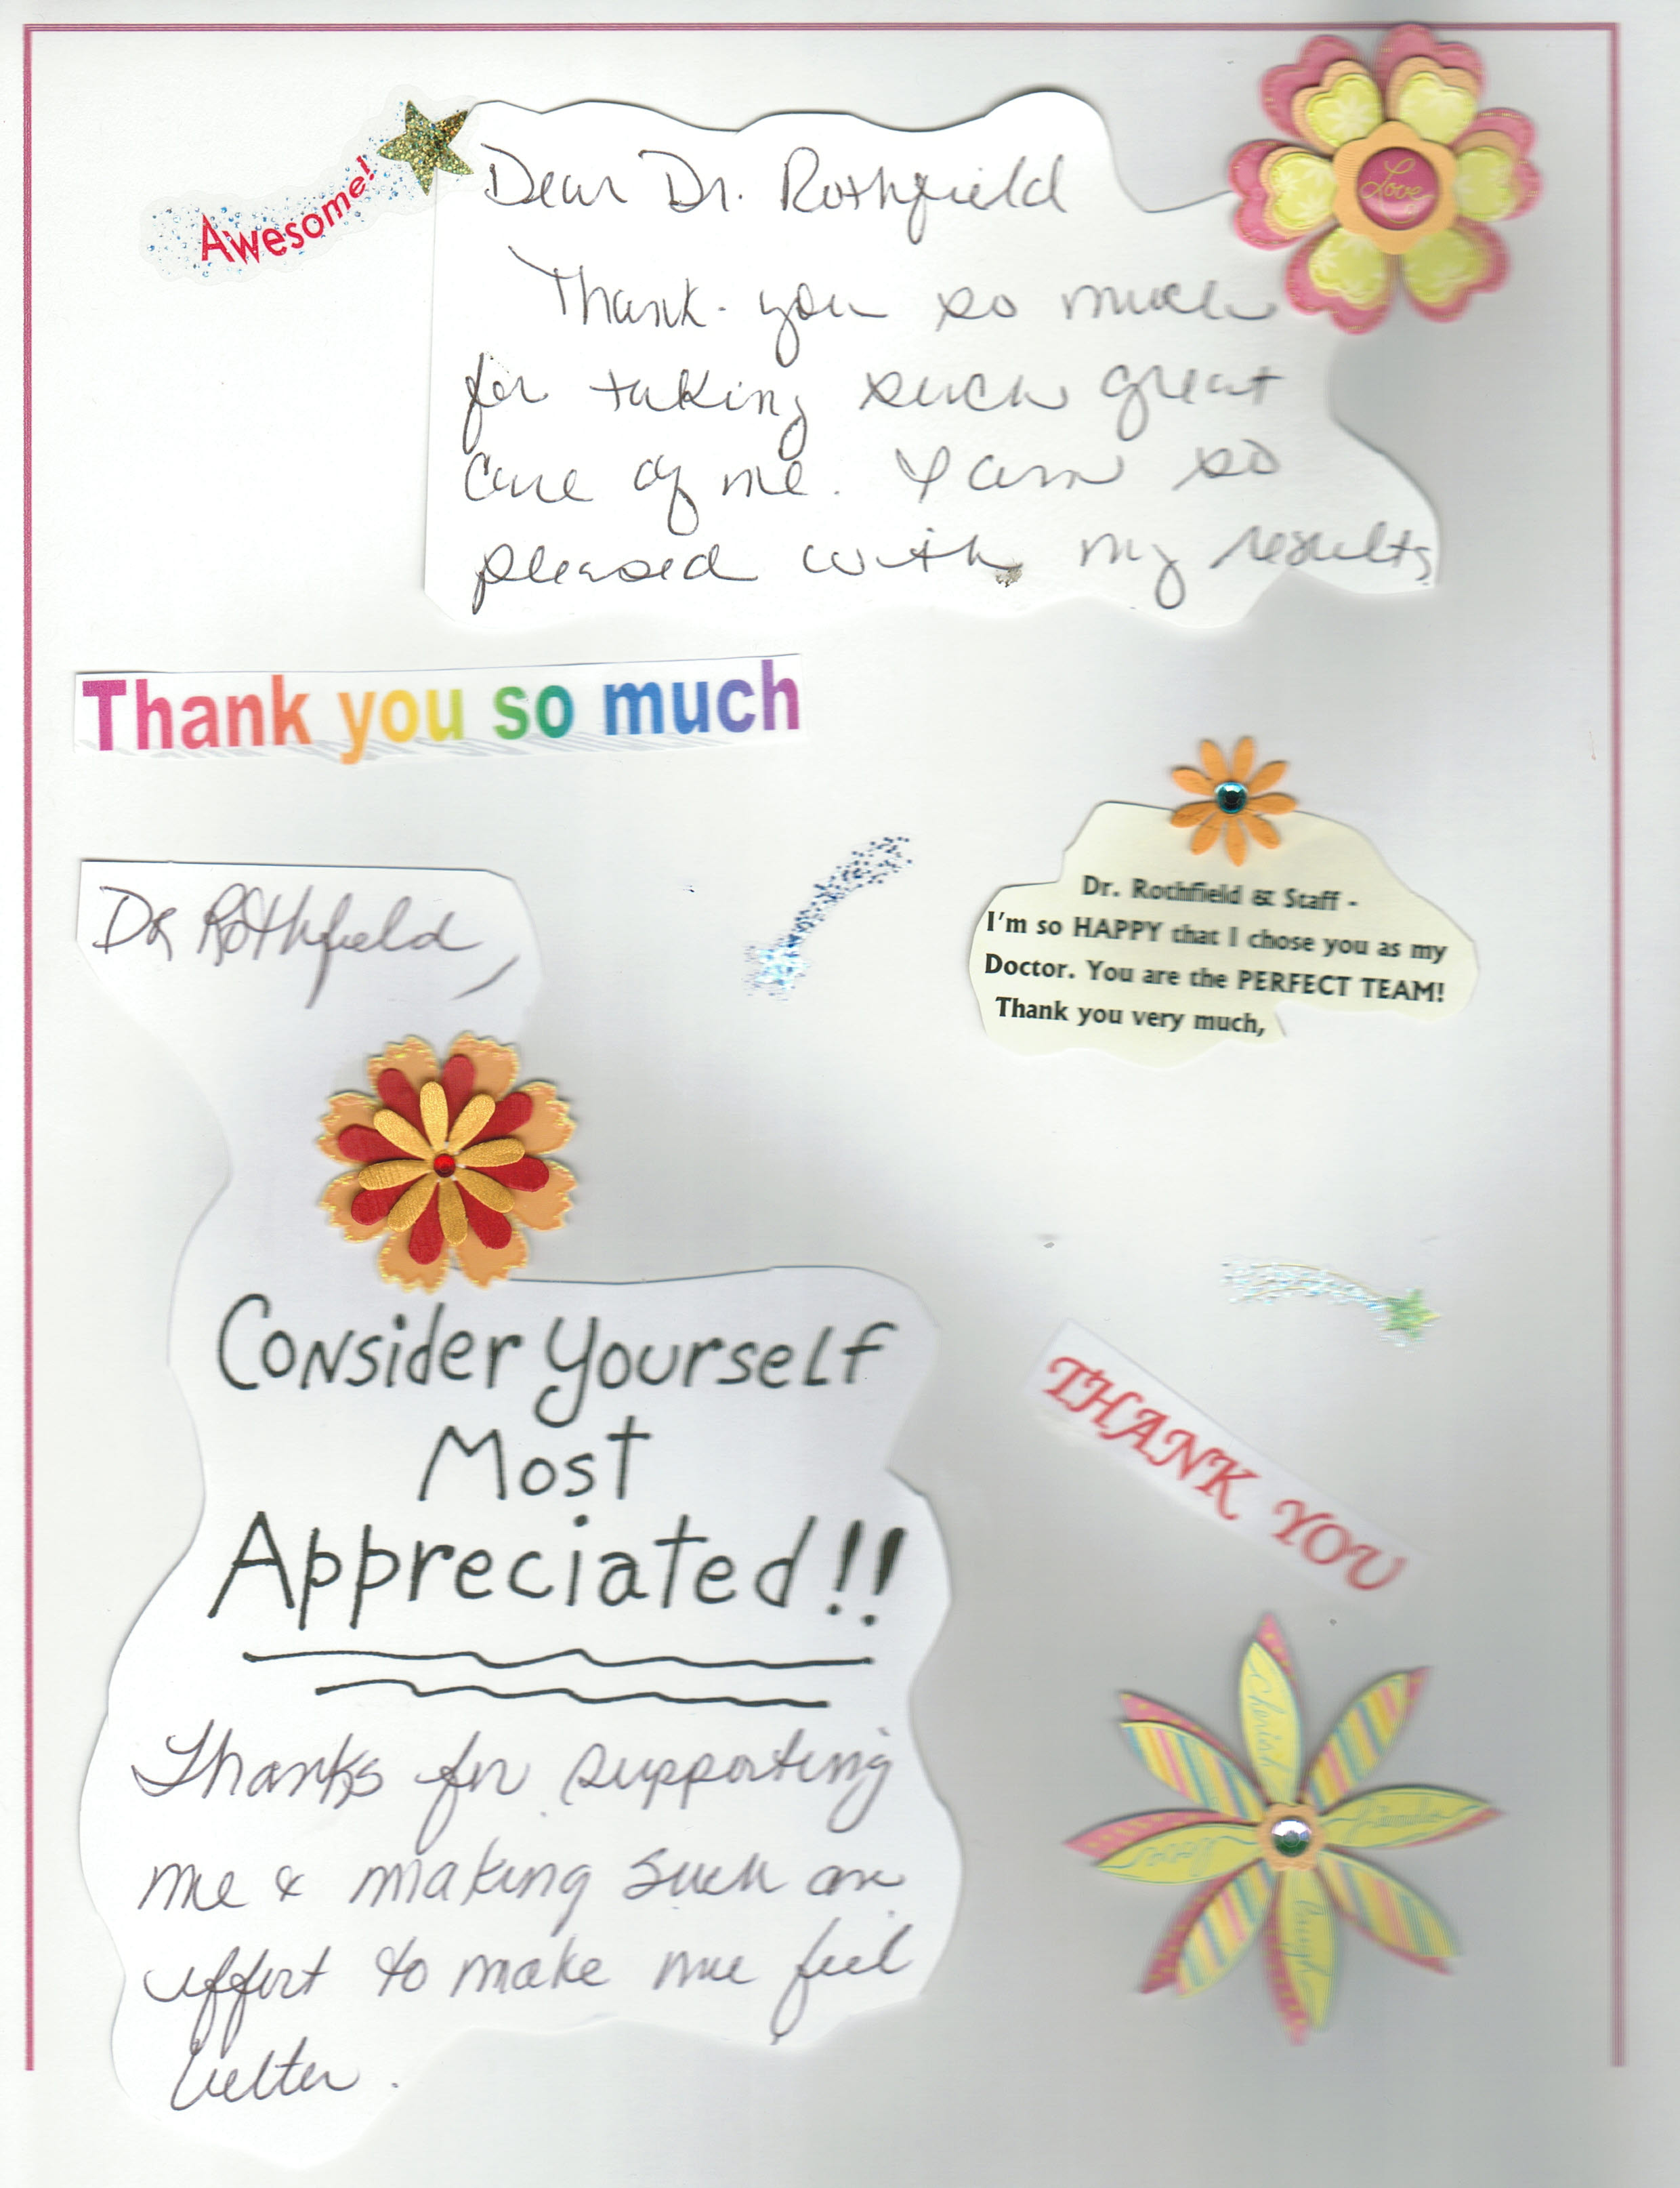 Awesome!
Dear Dr. Rothfield
Love
Thank you so much
for taking such great
care of me. I am so
pleased with my results
Thank you so much
Dr. Rothfield & Staff -
I'm so HAPPY that I chose you as my
Doctor. You are the PERFECT TEAM!
Thank you very much,
DR Rothfield,
Consider Yourself
Most
Appreciated!!
THANK YOU
Thanks for supporting
me & making such an
effort to make me feel
better.
cherish
friends
love
laugh